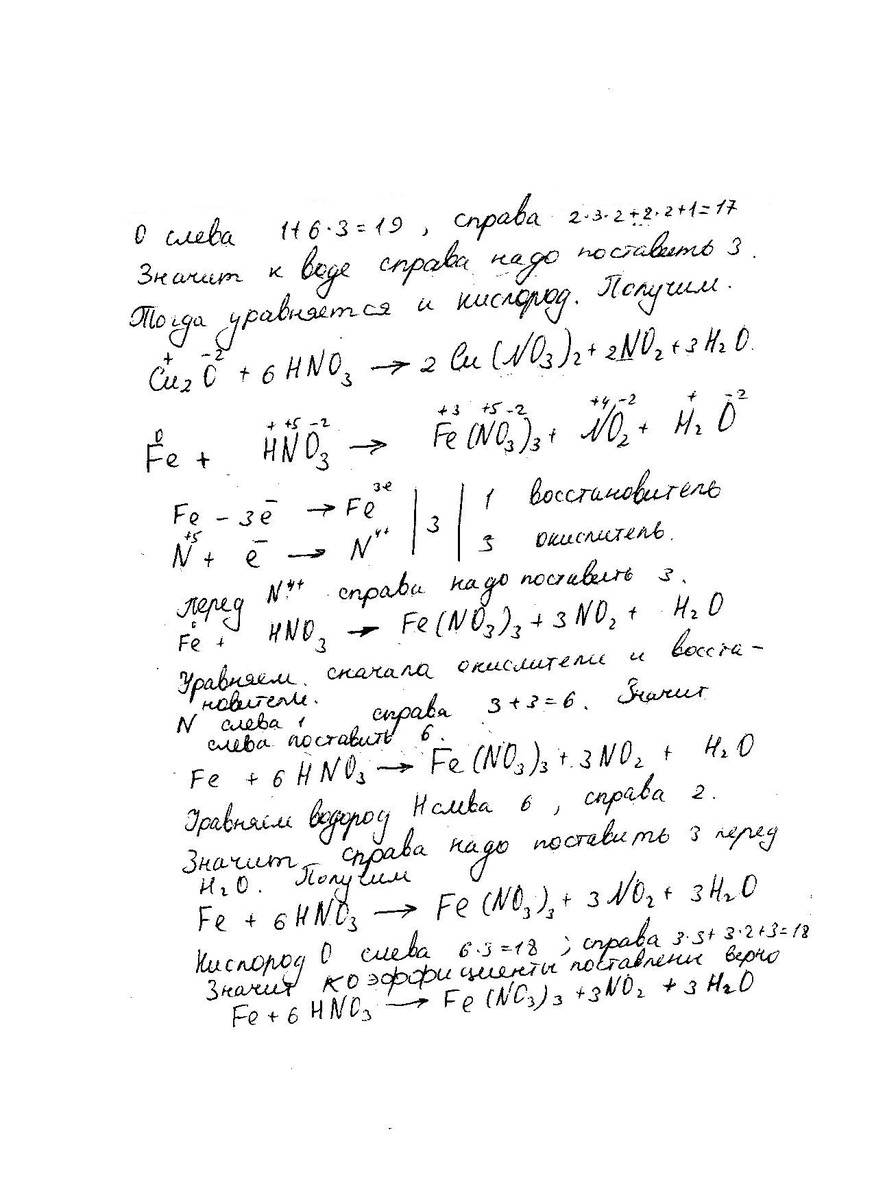 О слева 1+6·3=19, справа 2·3·2+2·2+1=17
Значит к воде справа надо поставить 3.
Тогда уравняется и кислород. Получим.
Cu₂⁺O⁻² + 6HNO₃ → 2Cu(NO₃)₂ + 2NO₂ + 3H₂O.
0 + +5 -2 +3 +5 -2 +4 -2 + -2
Fe + HNO₃ → Fe(NO₃)₃ + NO₂ + H₂O
Fe - 3e̅ → Fe³ᵉ | 3 | 1 восстановитель
N⁺⁵ + e̅ → N⁴⁺ | | 3 окислитель.
перед N⁴⁺ справа надо поставить 3.
Fe + HNO₃ → Fe(NO₃)₃ + 3NO₂ + H₂O
Уравняем сначала окислители и восста-
новители.
N слева 1 справа 3+3=6. Значит
слева поставить 6.
Fe + 6HNO₃ → Fe(NO₃)₃ + 3NO₂ + H₂O
Уравняем водород H слева 6, справа 2.
Значит справа надо поставить 3 перед
H₂O. Получим
Fe + 6HNO₃ → Fe(NO₃)₃ + 3NO₂ + 3H₂O
Кислород О слева 6·3=18; справа 3·3+3·2+3=18
Значит коэффициенты поставлены верно
Fe + 6HNO₃ → Fe(NO₃)₃ + 3NO₂ + 3H₂O